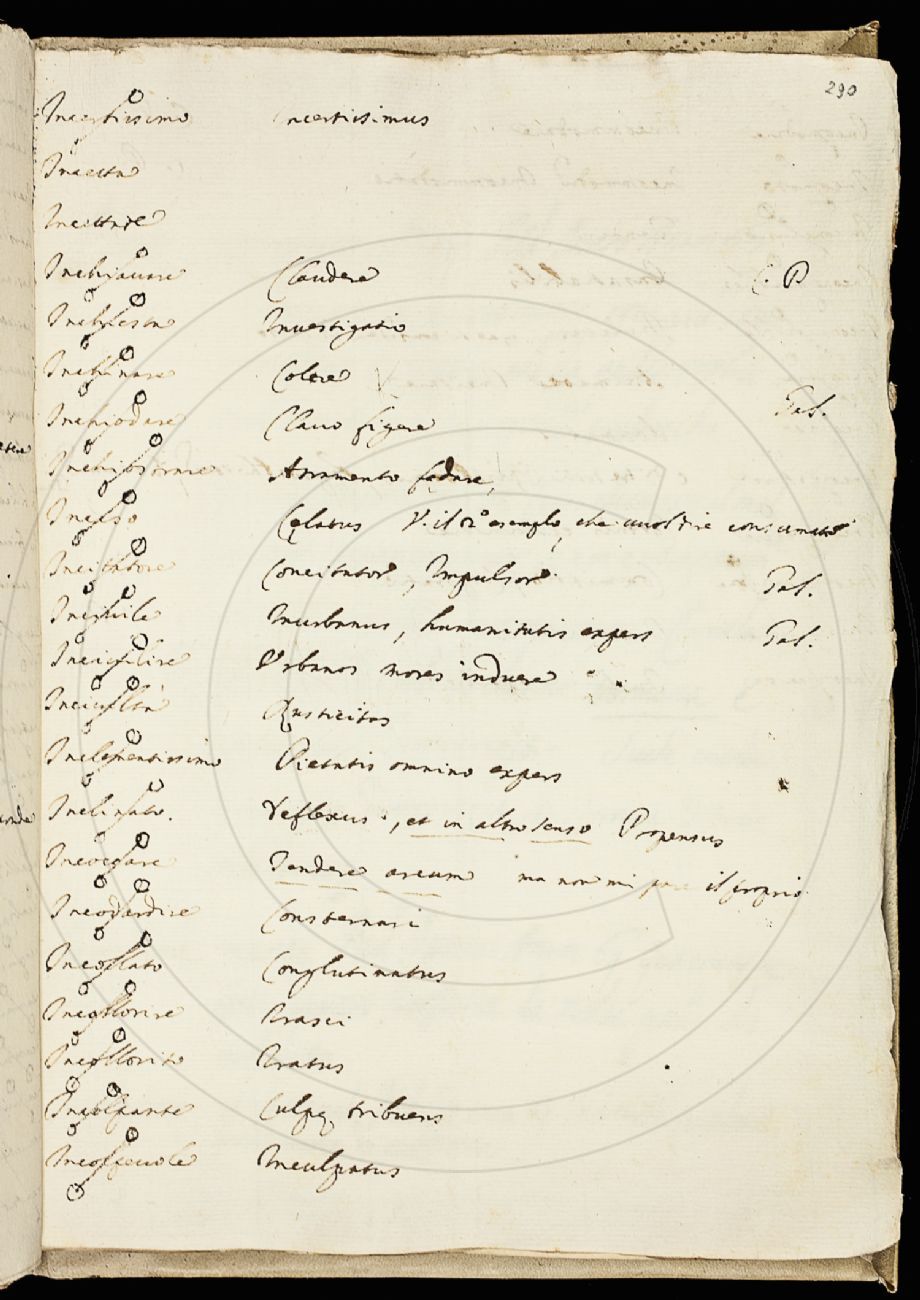 290
Incertissimo Incertissimus
Incetta
Incettare
Inchiavare Claudere C. P
Inchiesta Investigatio
Inchinare Colere
Inchiodare Clavo figere Tas.
Inchiostrare Atramento fędare,
Inciso Cęlatus V. il 2º esemplo, che vuol dire consumato
Incitatore Concitator, Impulsor Tas.
Incivile Inurbanus, humanitatis expers Tas.
Incivilire Urbanos mores induere
Inciviltà Rusticitas
Inclementissimo Pietatis omnino expers
Inclinato. reflexus, et in altro senso Propensus
Incoccare Tendere arcum ma non mi pare il proprio
Incodardire Consternari
Incollato Conglutinatus
Incollorire Irasci
Incollorito Iratus
Incolpante Culpę tribuens
Incolpevole Inculpatus